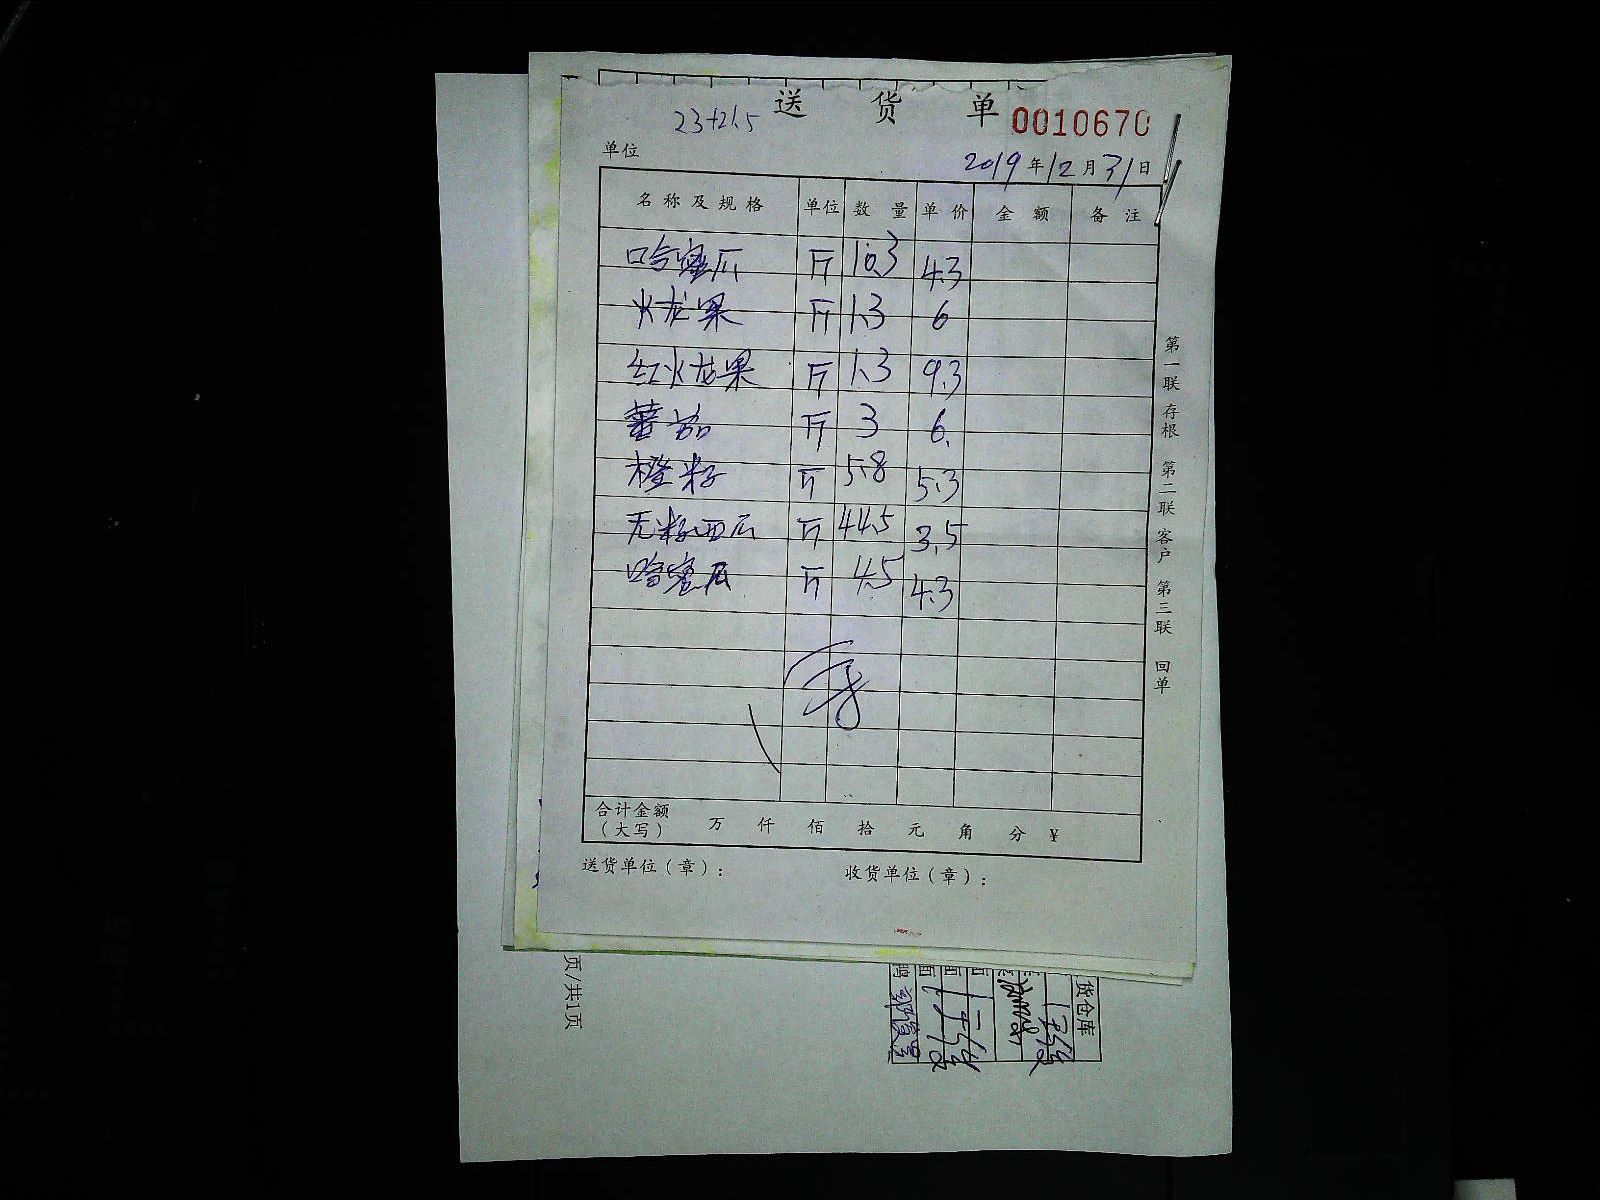 送 货 单 0010670
23+21.5
单位
2019 年 12 月 31 日
名称及规格 单位 数量 单价 金额 备注
哈蜜瓜 斤 10.3 4.3
火龙果 斤 1.3 6
红火龙果 斤 1.3 9.3
蕃茄 斤 3 6.
橙籽 斤 5.8 5.3
无籽西瓜 斤 44.5 3.5
哈蜜瓜 斤 4.5 4.3
合计金额
(大写) 万 仟 佰 拾 元 角 分 ¥
送货单位(章): 收货单位(章):
第一联 存根 第二联 客户 第三联 回单
页/共1页
货仓库